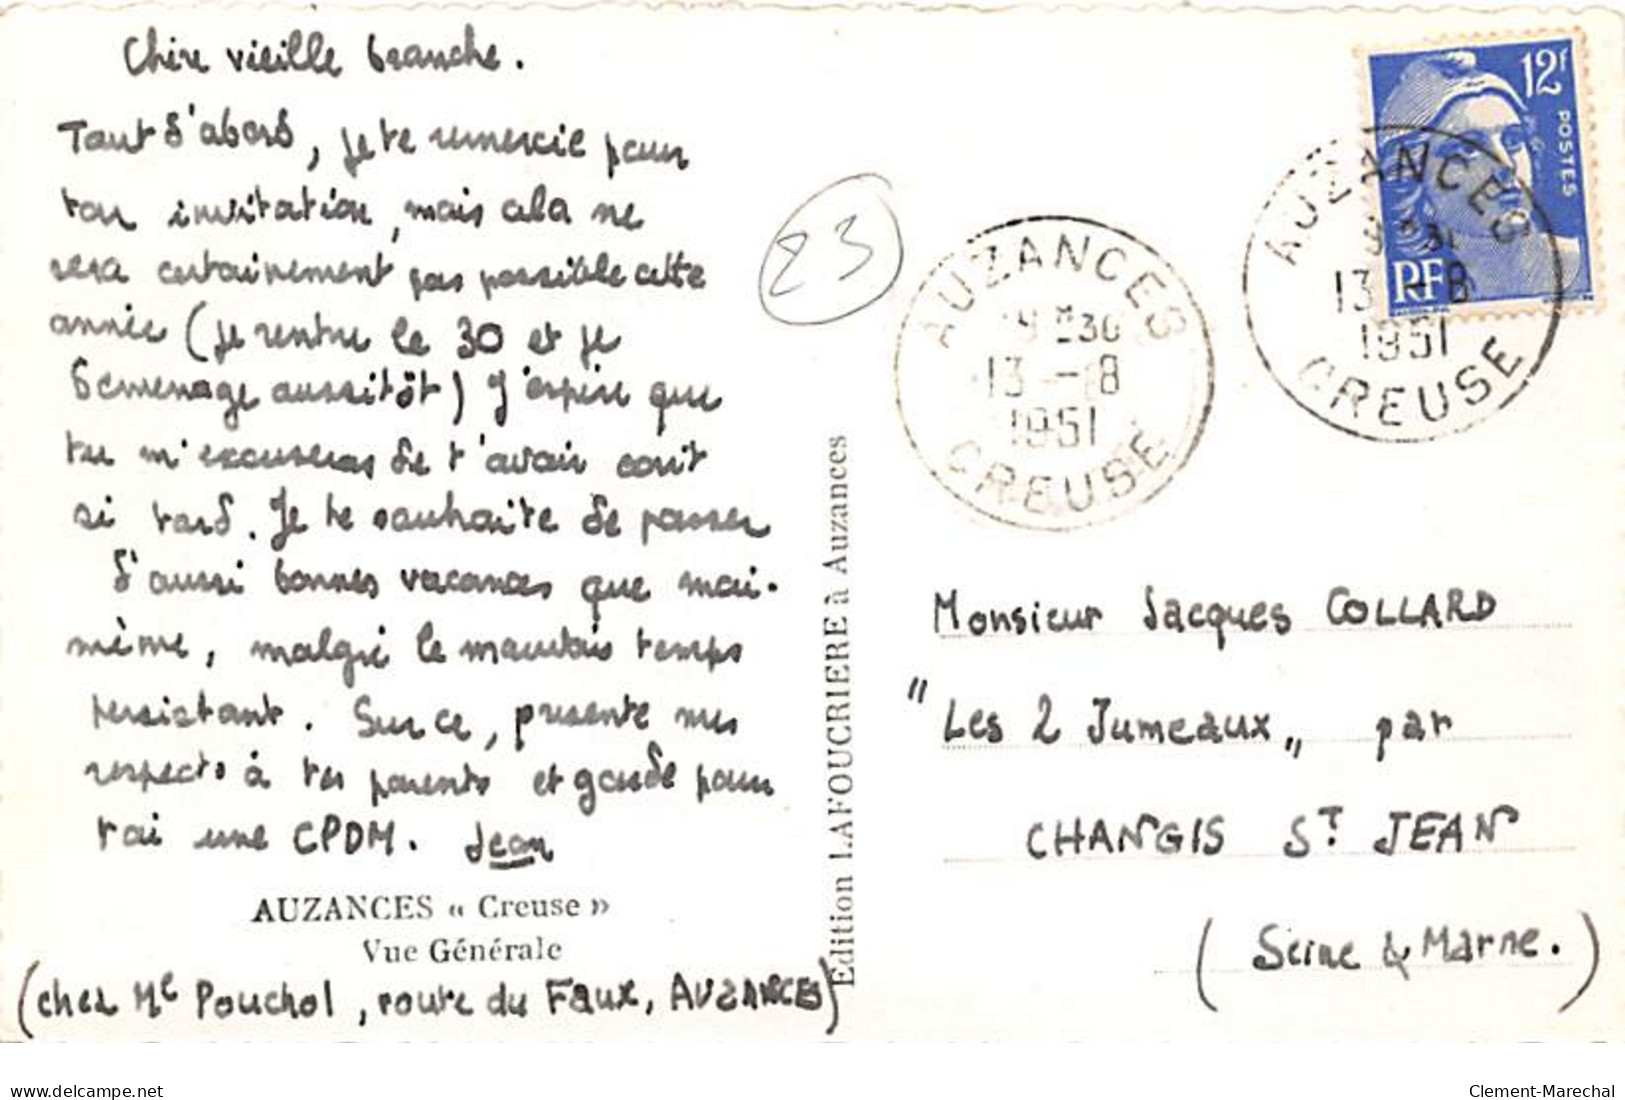 Chère vieille branche.
Tout d'abord, je te remercie pour
ton invitation, mais cela ne
sera certainement pas possible cette
année (je rentre le 30 et je
déménage aussitôt) J'espère que
tu m'excuseras de t'avoir écrit
si tard. Je te souhaite de passer
d'aussi bonnes vacances que moi-
même, malgré le mauvais temps
persistant. Sur ce, présente mes
respects à tes parents et garde pour
toi une CPDM. Jean
AUZANCES « Creuse »
Vue Générale
(chez Me Pouchol, route du Faux, AUZANCES)
Edition LAFOUCRIERE à Auzances
23
AUZANCES
9H30
13 - 8
1951
CREUSE
12F
POSTES
RF
AUZANCES
9H30
13 - 8
1951
CREUSE
Monsieur Jacques COLLARD
"Les 2 Jumeaux" par
CHANGIS ST JEAN
(Seine & Marne.)
delcampe.net
Clement-Marechal